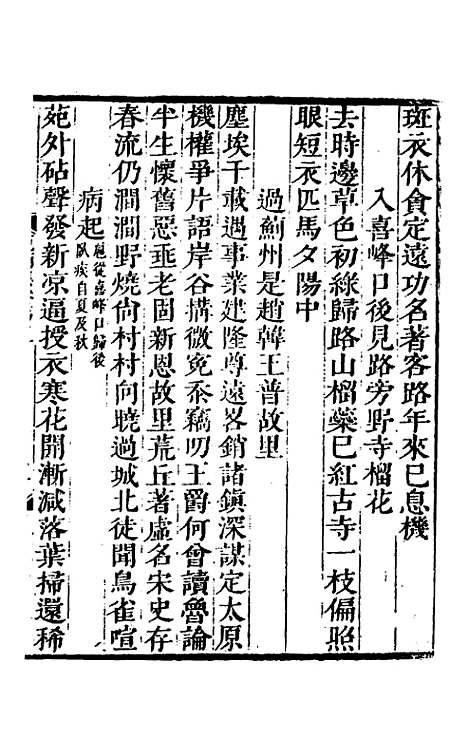 斑衣休食定遠功名著客路年來已息機
入喜峰口後見路旁野寺榴花
去時邊草色初綠歸路山榴蘂已紅古寺一枝偏照
眼短衣匹馬夕陽中
過薊州是趙韓王普故里
塵埃千載遇事業建隆尊遠畧銷諸鎮深謀定太原
機權爭片語岸谷搆微寃忝竊叨王爵何曾讀魯論
半生懷舊惡垂老固新恩故里荒丘著虛名宋史存
春流仍㵎㵎野燒尙村村向曉過城北徒聞鳥雀喧
病起扈從喜峰口歸後臥疾自夏及秋
苑外砧聲發新凉逼授衣寒花開漸減落葉掃還稀